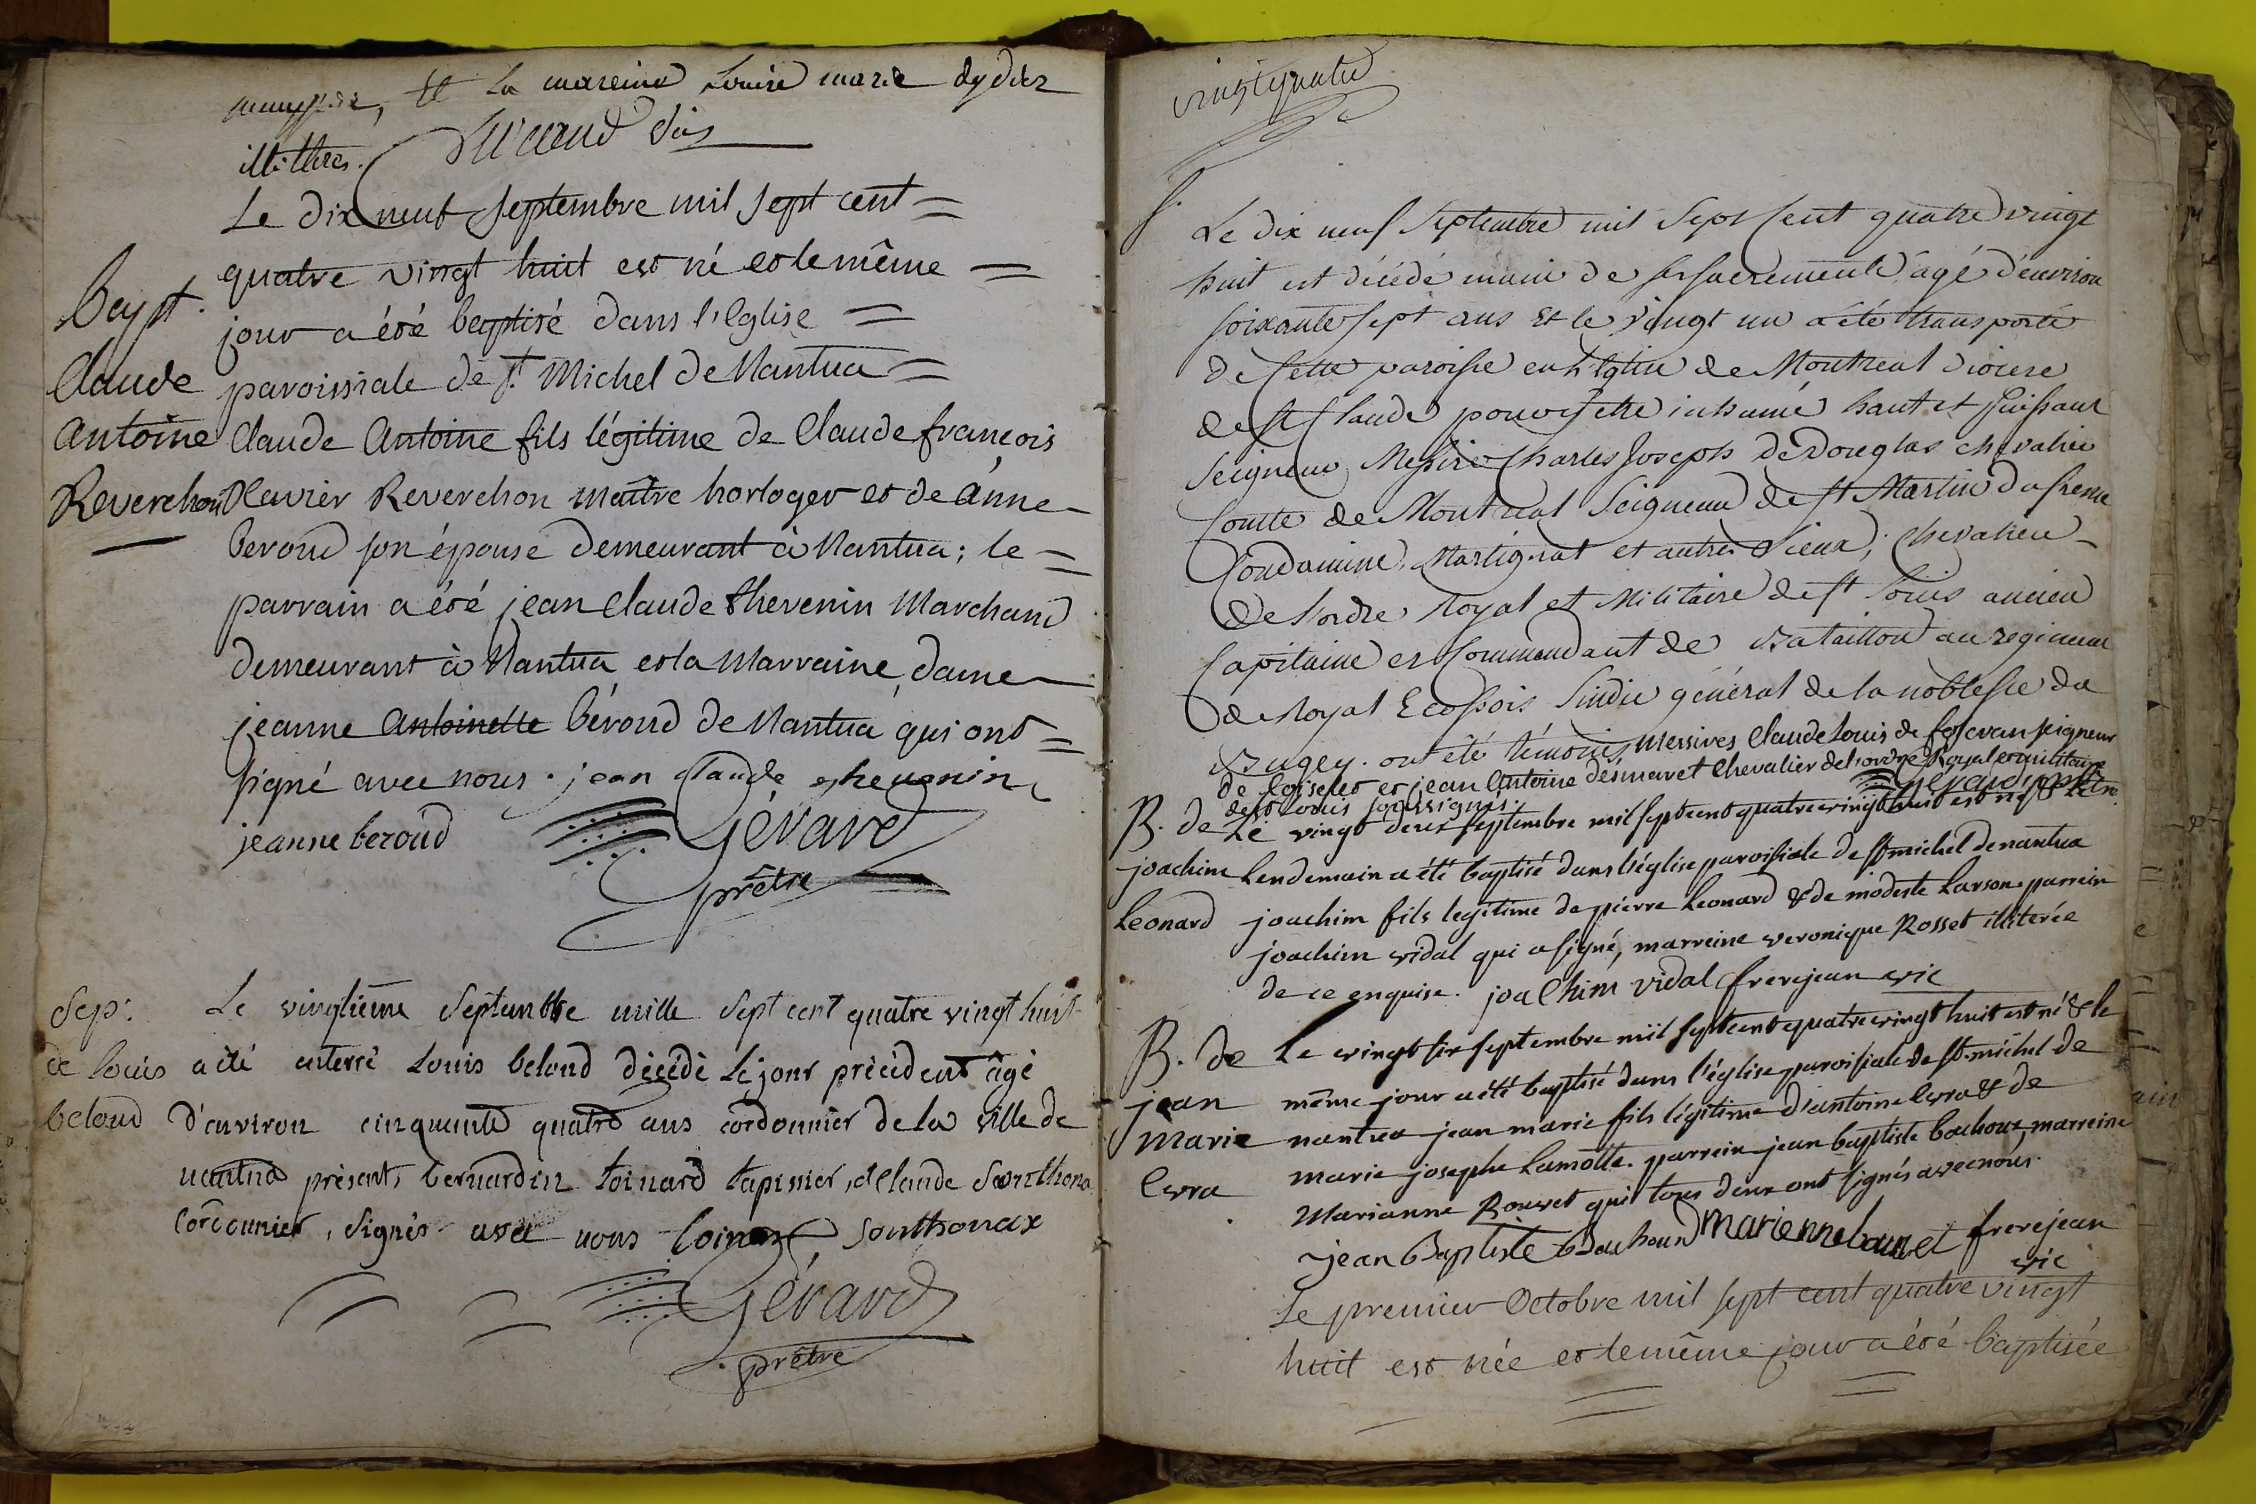 et la mareine Louise marie dydier
illitteres.
Le dix neuf septembre mil sept cent =
quatre vingt huit est né et le même =
Bapt. jour a été baptisé dans l'Eglise =
Claude paroissiale de st. Michel de Nantua =
Antoine Claude Antoine fils légitime de Claude françois
Reverchon Xavier Reverchon maître horloger et de Anne
beroud son épouse demeurant à Nantua; le =
parrain a été jean claude thevenin Marchand
demeurant à Nantua et la Marraine dame
jeanne Antoinette béroud de Nantua qui ont =
signé avec nous. jean claude thevenin
jeanne beroud Gérard
prêtre
Sep: Le vingtieme Septembre mille sept cent quatre vingt huit
de louis a été enterré Louis beloud décédé le jour précédent âgé
beloud D'environ cinquante quatre ans cordonnier de la ville de
nantua présents bernardin toinard tapissier, et claude Sonthona
Cordonnier, signés avec nous toinard Sonthonax
Gérard
prêtre
vingt quatre
S. Le dix neuf Septembre mil Sept Cent quatre vingt
huit est décédé muni de ses sacrements agé d'environ
soixante sept ans et le vingt un a été transporté
de Cette paroisse en l'Eglise de Montreal diocese
de St Claude pour y etre inhumé haut et Puissant
Seigneur Messire Charles Joseph de Douglas chevalier
Comte de Montreal Seigneur de St Martin du fresne
Condamine, Martignat et autres Lieux, chevalier
de l'ordre Royal et Militaire de St Louis ancien
Capitaine et Commandant de Bataillon au regiment
de Royal Ecossois Sindic général de la noblesse du
Bugey. ont été témoins Messires Claude Louis de seigneur
de et jean Antoine Desmaret Chevalier de l'ordre Royal et militaire
de st Louis soussignés. Gérard prêtre
B. de Le vingt deux septembre mil sept cent quatre vingt huit est né & le
joachim Lendemain a été baptisé dans l'église paroissiale de st michel de nantua
Leonard joachim fils legitime de pierre Leonard & de modeste Larson. parrein
joachim vidal qui a signé, marreine veronique Rosset illiterée
de ce enquise. joachim vidal frerejean vic
B. de Le vingt six septembre mil sept cent quatre vingt huit est né & le
jean même jour a été baptisé dans l'église paroissiale de st. michel de
Marie nantua jean marie fils légitime d'antoine Cerra & de
Cerra marie josephe Lamotte. parrein jean baptiste bachoux, marreine
Marianne Bouvet qui tous deux ont signés avec nous.
jean Baptiste Bachoud marienne bouvet frerejean
vic
Le premier Octobre mil sept cent quatre vingt
huit est née et le même jour a été baptisée